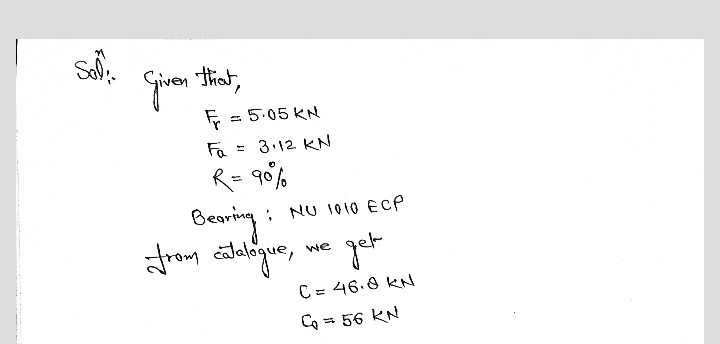 Solⁿ:. Given that,
Fr = 5.05 KN
Fa = 3.12 KN
R = 90%
Bearing : NU 1010 ECP
from catalogue, we get
C = 46.8 KN
C0 = 56 KN